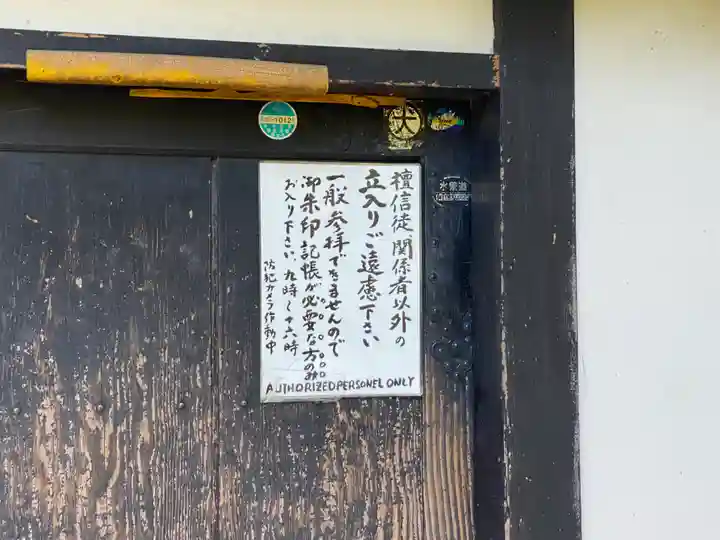 檀信徒、関係者以外の
立入りご遠慮下さい
一般参拝できませんので
御朱印記帳が必要な方のみ
お入り下さい。九時〜十六時
防犯カメラ作動中
AUTHORIZED PERSONEL ONLY
犬
水道